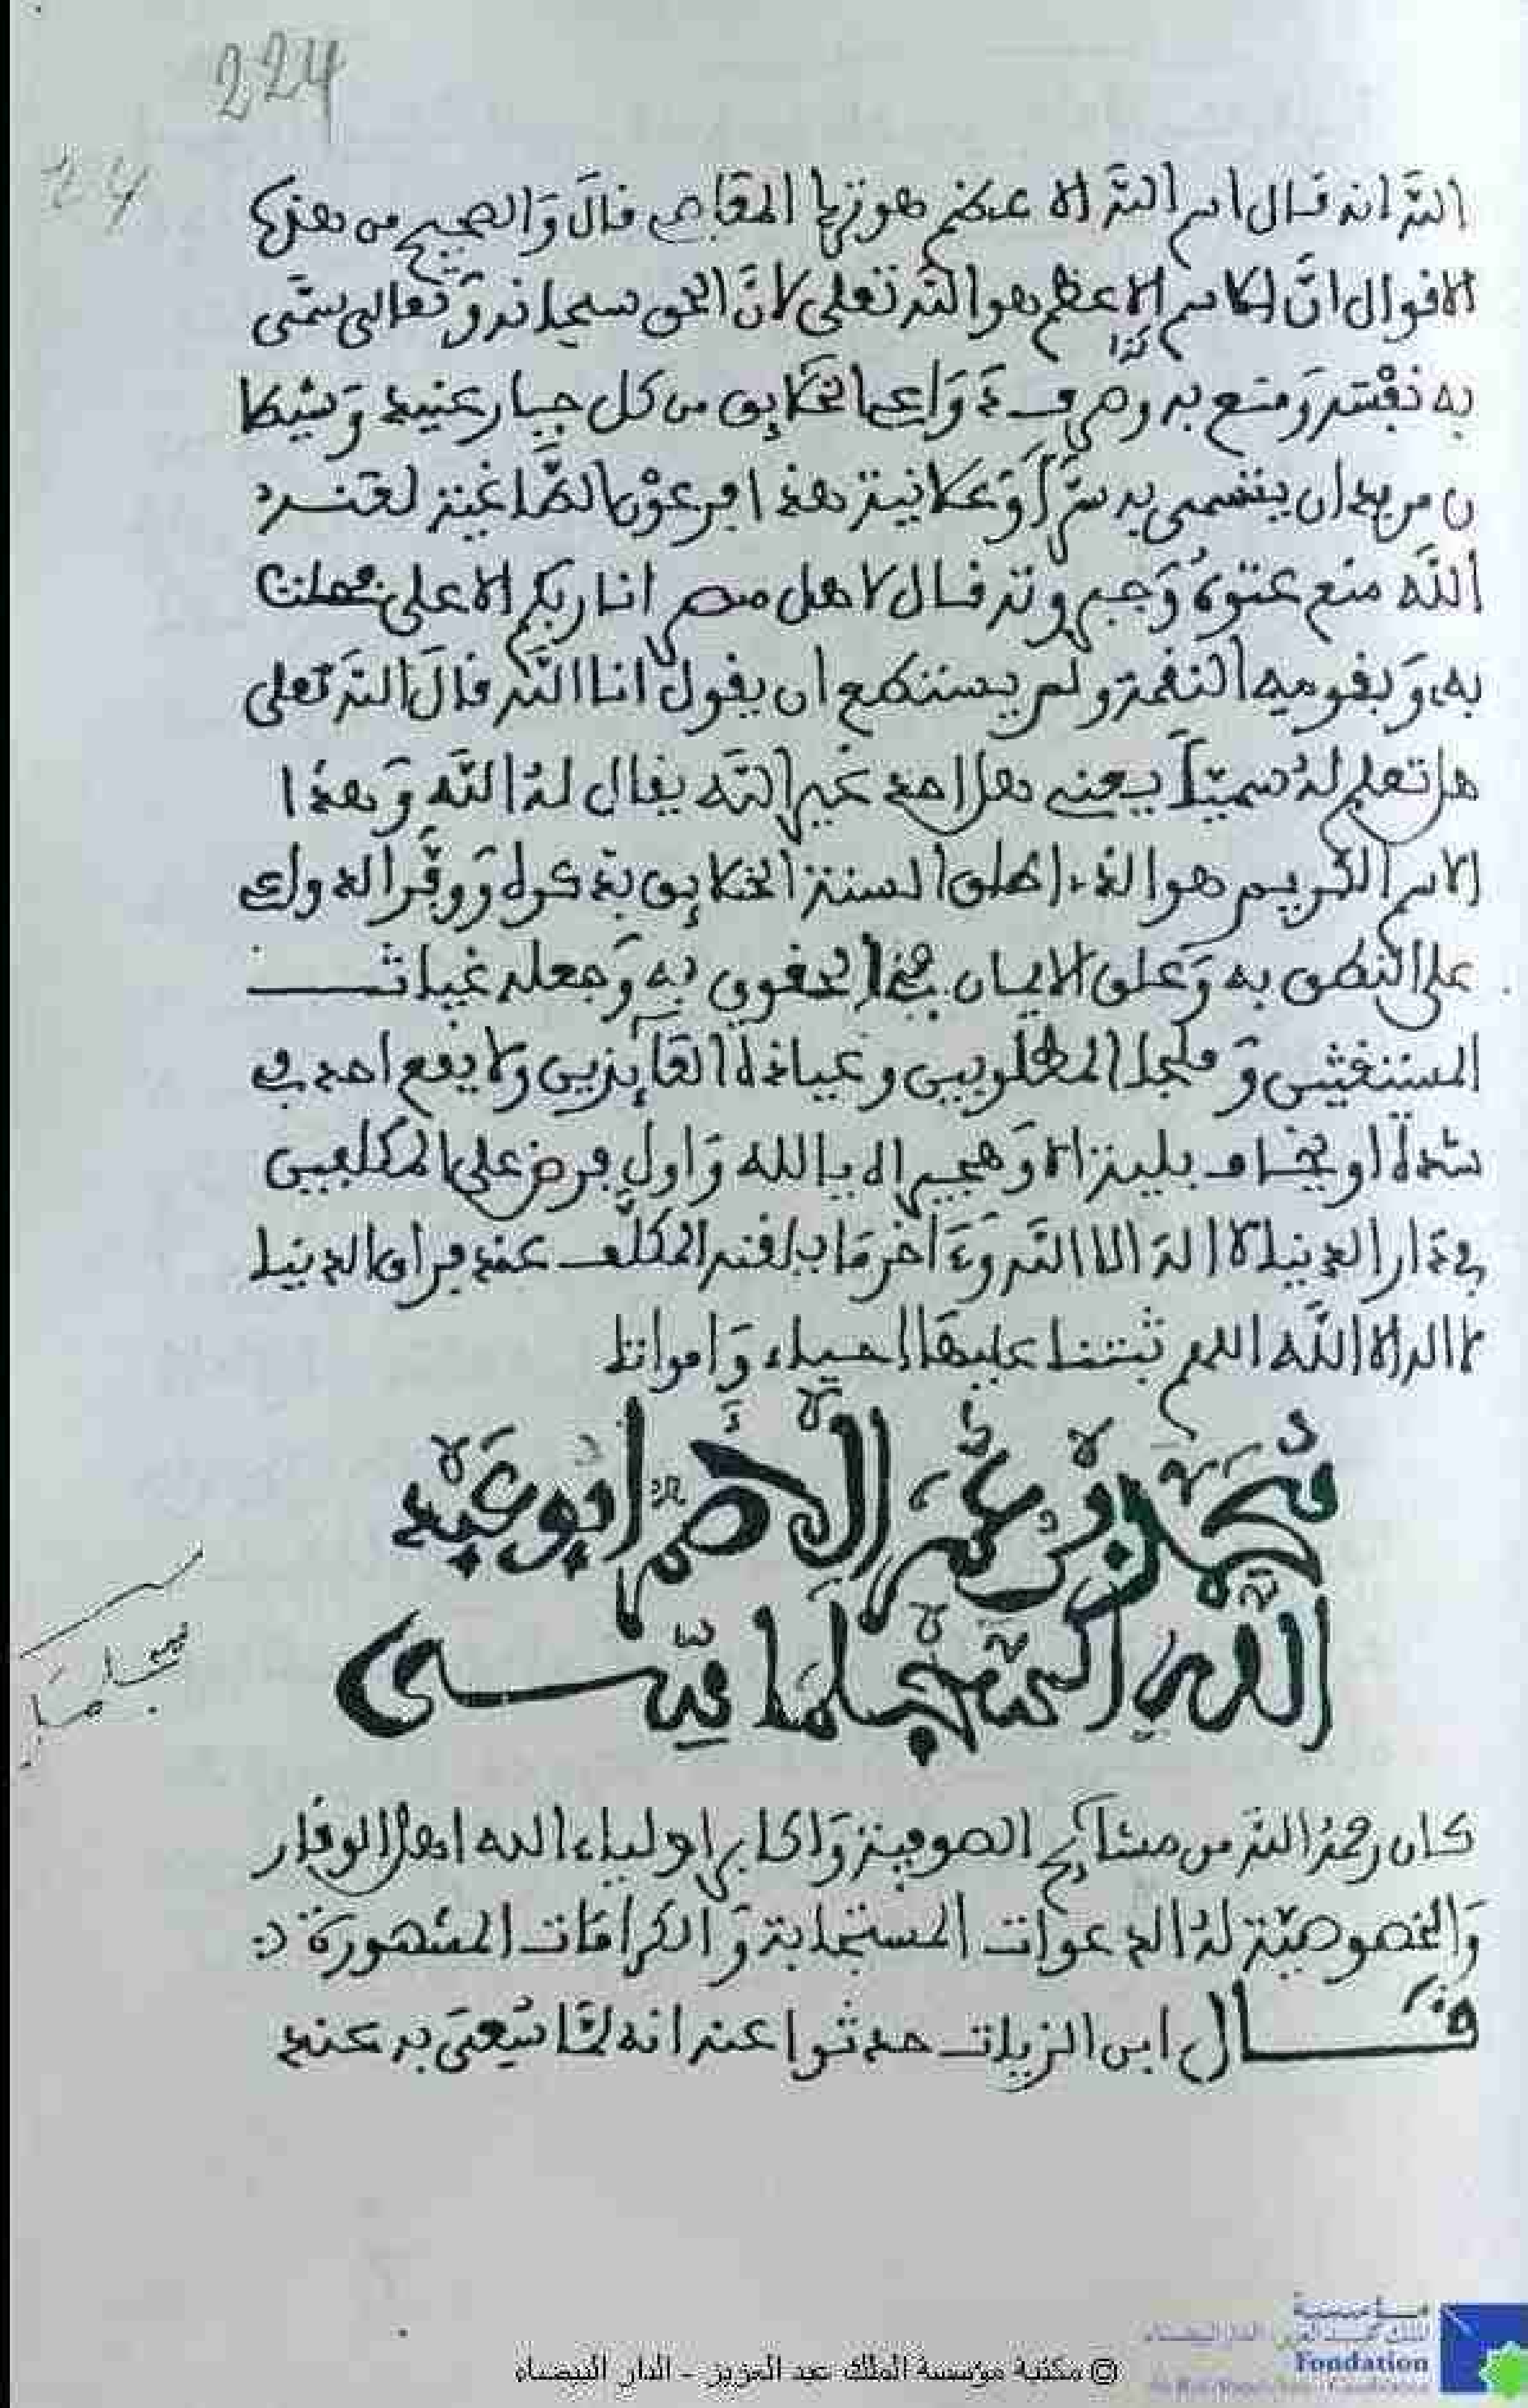 224
24
الله انه قال اسم الله الاعظم هو ترياق المقاصد قال والصحيح من هذه
الاقوال ان الاسم الاعظم هو الله تعلى لان الحق سبحانه وتعالى سمى
به نفسه ومنع به وصرف دواعي الخلايق من كل جبار عنيد وشيطا
ن مريد ان يتسمى به سرا وعلانية هذا فرعون الطاغية لعنه
الله مع عتوه وجبروته قال لاهل مصر انا ربكم الاعلى فحلت
به وبقومه النقمة ولم يستطع ان يقول انا الله قال الله تعلى
هل تعلم له سميا يعني هل احد غير الله يقال له الله وهذا
الاسم الكريم هو الذي اطلق السنة الخلايق بذكره ووفر الدواعي
على النطق به وعلق الايمان به وجعله غياث
المستغيثين وملجأ المطلوبين وعياذة الفايزين ولا يقع احد في
شدة او يخاف بلية الا وهجيره الا بالله واول فرض على المكلفين
في دار الدنيا لا اله الا الله وءاخر ما يلقنه المكلف عند فراق الدنيا
لا اله الا الله اللهم ثبتنا عليها احياء وامواتا
محمد بن عمر الاصم ابو عبد
الله السجلماسي
كان رحمه الله من مشايخ الصوفية واكابر اولياء الله اهل الوقار
والخصوصية له الدعوات المستجابة والكرامات المشهورة
قال ابن الزيات حدثوا عنه انه لما سعى به عند
© مكتبة مؤسسة الملك عبد العزيز - الدار البيضاء
مؤسسة
الملك عبد العزيز الدار البيضاء
Fondation